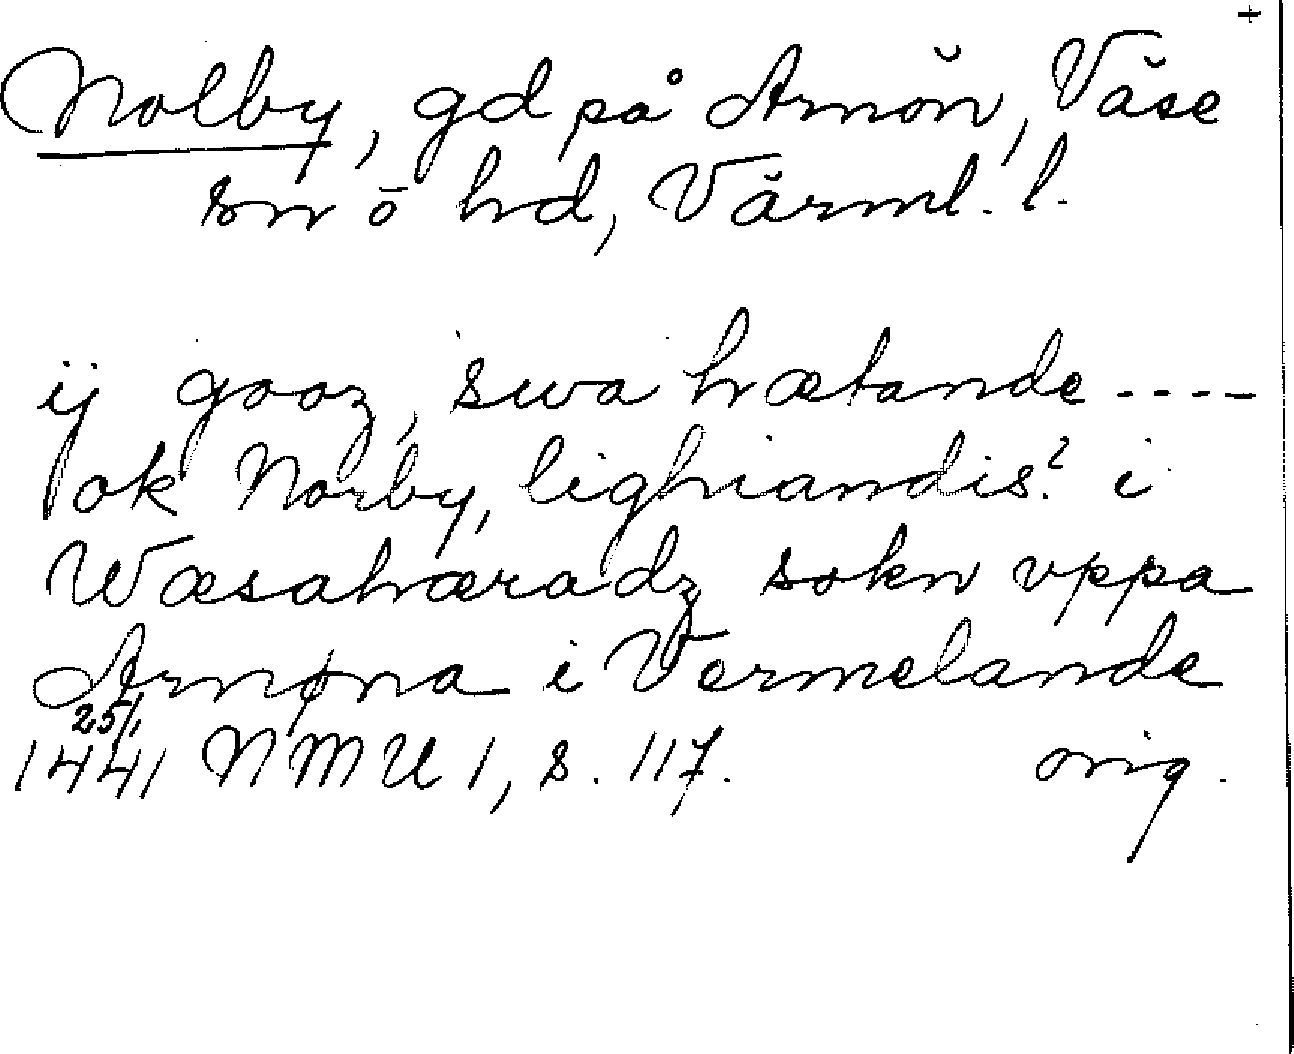 +
Nolby, gd på Arnön, Väse
sn o hd, Värml. l.
ij gooz, swa hætande ----
ok Norby, lighiandis? i
Wæsahæradz sokn vppa
Arnøna i Vermelande
25/1
1441 NMU 1, s. 117. orig.